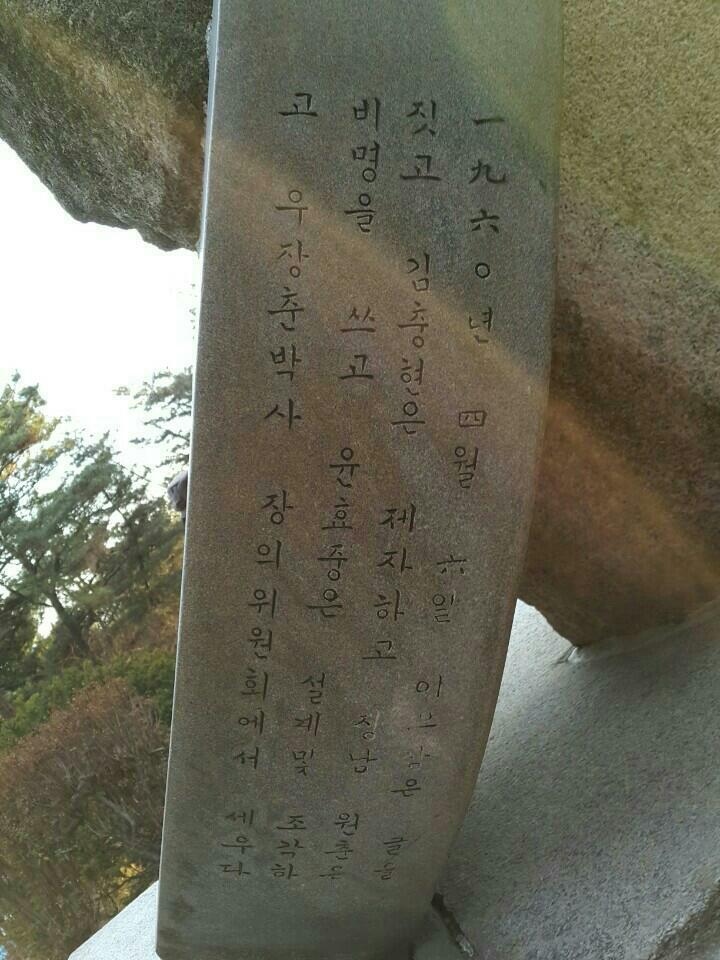 一九六○년 四월 六일 글을
짓고 김충현은 제자하고 원춘은
비명을 쓰고 윤효중은 설계및 조각하
고 우장춘박사 장의위원회에서 세우다